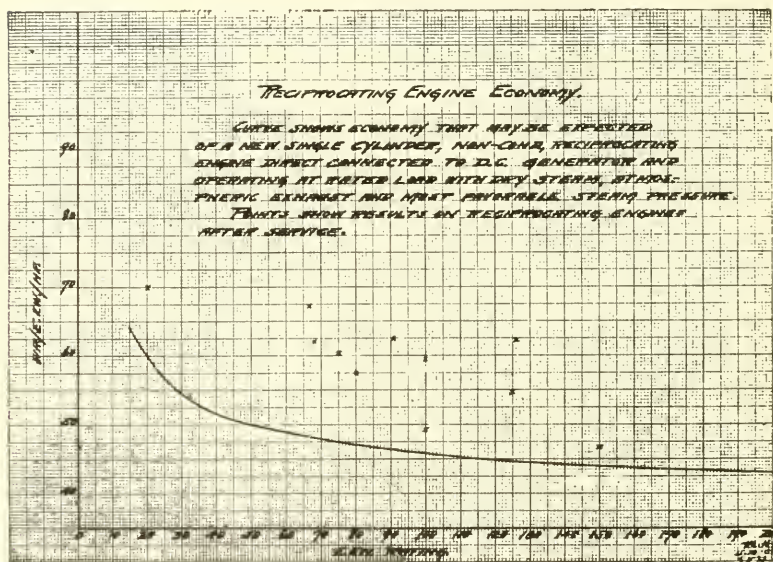 RECIPROCATING ENGINE ECONOMY.
CURVE SHOWS ECONOMY THAT MAY BE EXPECTED
OF A NEW SINGLE CYLINDER, NON-COND, RECIPROCATING
ENGINE DIRECT CONNECTED TO D.C. GENERATOR AND
OPERATING AT RATED LOAD WITH DRY STEAM, ATMOS-
PHERIC EXHAUST AND MOST FAVORABLE STEAM PRESSURE.
POINTS SHOW RESULTS ON RECIPROCATING ENGINES
AFTER SERVICE.
90
80
70
60
50
40
0 10 20 30 40 50 60 70 80 90 100 110 120 130 140 150 160 170 180 190 20
RATING